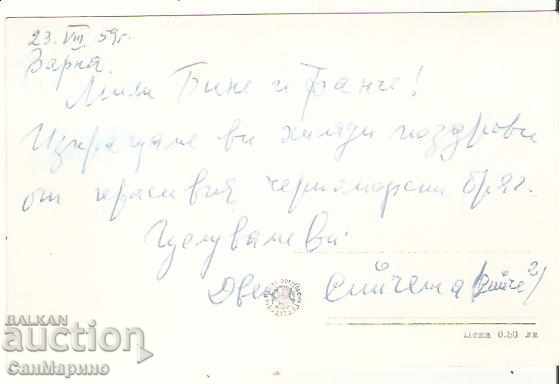 23. VIII 59г.
Варна.
Мили Бине и Ганче!
Изпращаме ви хиляди поздрави
от красивия черноморски бряг.
Целуваме ви.
Две
Цена 0.80 лв
BALKAN
auction
СанМарино